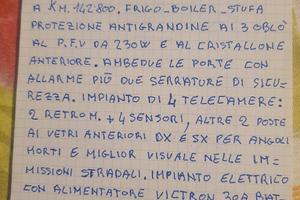 A KM. 142.800. FRIGO-BOILER-STUFA
PROTEZIONE ANTIGRANDINE AI 3 OBLÒ
AL P.F.V DA 230W E AL CRISTALLONE
ANTERIORE. AMBEDUE LE PORTE CON
ALLARME PIÙ DUE SERRATURE DI SICU-
REZZA. IMPIANTO DI 4 TELECAMERE:
2 RETROM. + 4 SENSORI, ALTRE 2 POSTE
AI VETRI ANTERIORI DX E SX PER ANGOLI
MORTI E MIGLIOR VISUALE NELLE IM-
MISSIONI STRADALI. IMPIANTO ELETTRICO
CON ALIMENTATORE VICTRON 30A BAT-